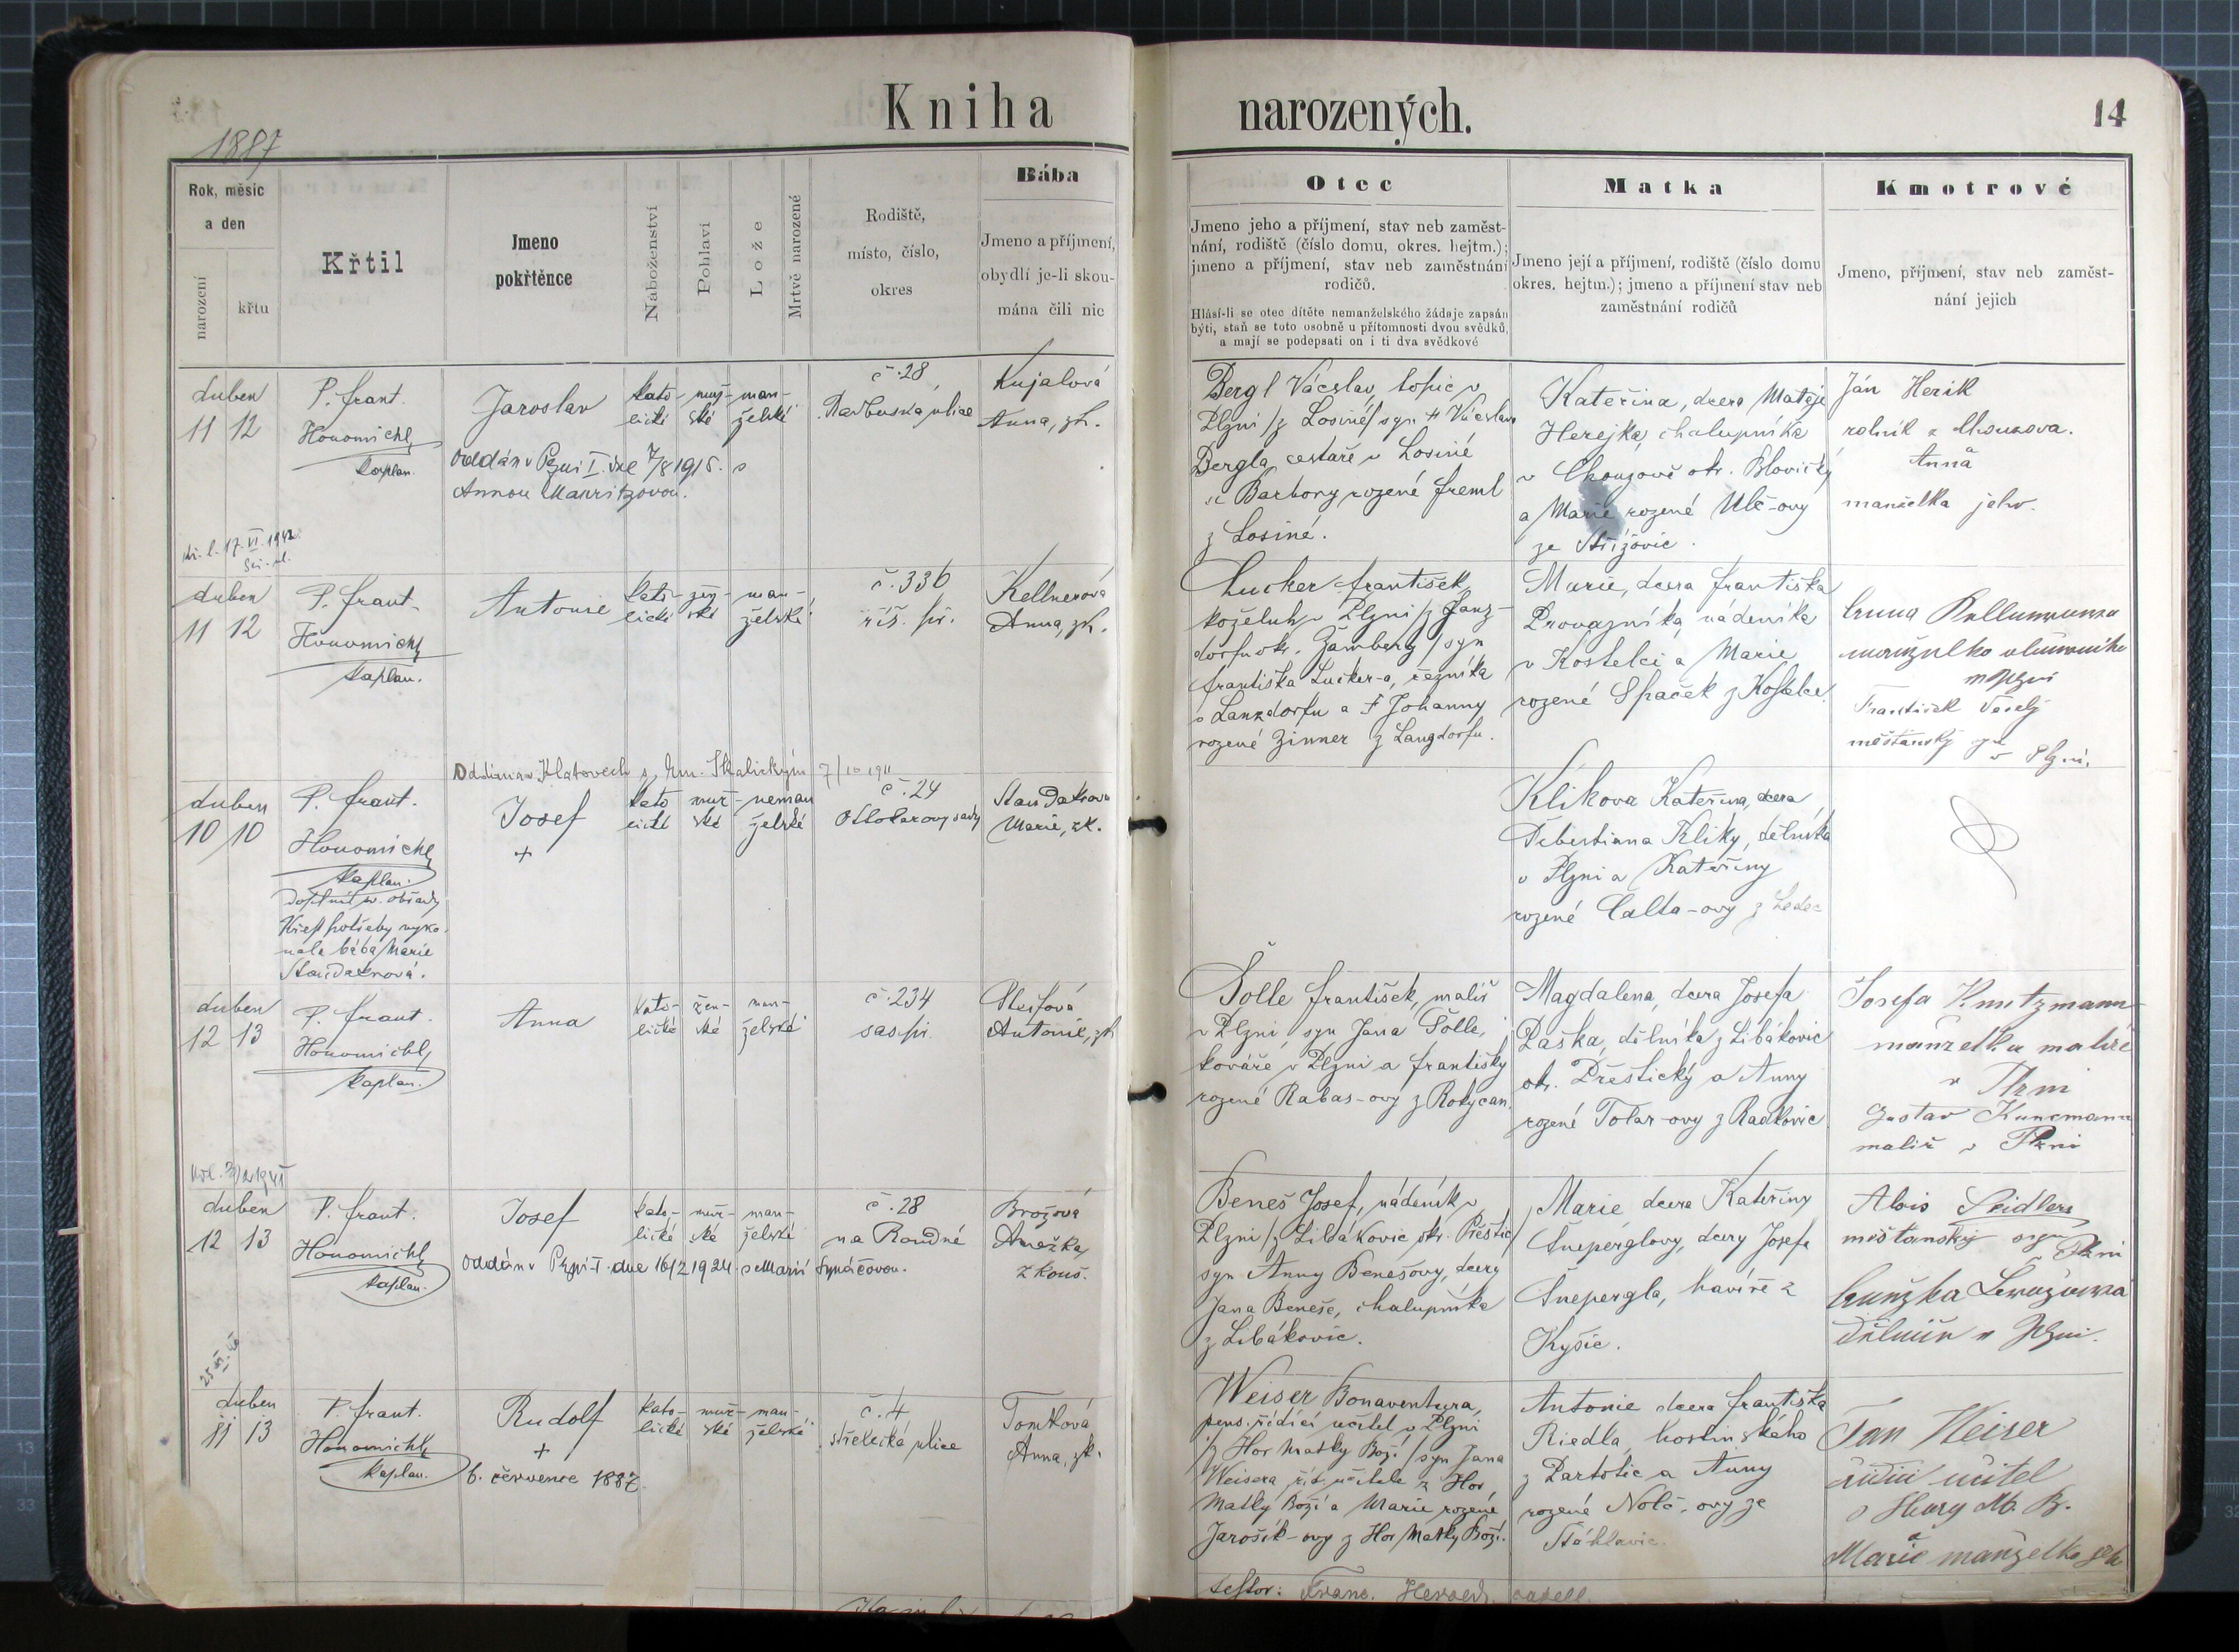 Kniha narozených.
14
1887
Rok, měsíc a den
narození
křtu
Křtil
Jmeno pokřtěnce
Náboženství
Pohlaví
Lože
Mrtvě narozené
Rodiště, místo, číslo, okres
Bába
Jmeno a příjmení, obydlí je-li skoumána čili nic
Otec
Jmeno jeho a příjmení, stav neb zaměst-
nání, rodiště (číslo domu, okres. hejtm.);
jmeno a příjmení, stav neb zaměstnání
rodičů.
Hlásí-li se otec dítěte nemanželského žádaje zapsán
býti, staň se toto osobně u přítomnosti dvou svědků,
a mají se podepsati on i ti dva svědkové
Matka
Jmeno její a příjmení, rodiště (číslo domu
okres. hejtm.); jmeno a příjmení stav neb
zaměstnání rodičů
Kmotrové
Jmeno, příjmení, stav neb zaměst-
nání jejich
duben
11 12
P. Frant.
Honomichl,
kaplan.
Jaroslav
kato-
lické
muž-
ské
man-
želské
č. 28
ulice
Kujalová
Anna, zk.
Oddán v Plzni I. dne 7/8 1915. s
Annou Mauritzovou.
Bergl Václav, topič v
Plzni /z Losiné/ syn † Václava
Bergla, cestáře v Losiné
a Barbory rozené Freml
z Losiné.
Kateřina, dcera Matěje
Herejka, chalupníka
v Chouzově okr. Blovický
a Marie rozené Ulč-ovy
ze Střížovic.
Ján Herik
rolník z Chouzova.
Anna
manželka jeho.
17. VI. 1942
duben
11 12
P. Frant.
Honomichl
kaplan.
Antonie
kato-
lické
žen-
ské
man-
želské
č. 336
říš. př.
Kellnerová
Anna, zk.
Lucker František,
koželuh v Plzni /z Lanz-
dorfu okr. Žamberg/ syn
Františka Lucker-a, řezníka
v Lanzdorfu a † Johanny
rozené Zinner z Langdorfu.
Marie, dcera Františka
Provazníka, nádeníka
v Kostelci a Marie
rozené Špaček z Kostelce.
Anna
v Plzni
František Veselý
měšťanský syn
v Plzni.
Oddána v Klatovech s Skalickým 7/10 1911
duben
10 10
P. Frant.
Honomichl
kaplan.
doplnil sv. obřady
Křest potřeby vyko-
nala bába Marie
Standaknová.
Josef
+
kato
lické
muž-
ské
neman
želské
č. 24
Ottokarovy sady
Marie, zk.
Klikova Kateřina, dcera
Šebestiana Kliky, dělníka
v Plzni a Kateřiny
rozené Calta-ovy z Ledec
duben
12 13
P. Frant.
Honomichl,
kaplan.
Anna
kato-
lické
žen-
ské
man-
želské
č. 234
sas. př.
Antonie, zk.
Šolle František, malíř
v Plzni, syn Jana Šolle,
kováře v Plzni a Františky
rozené Rabas-ovy z Rokycan.
Magdalena, dcera Josefa
Paška, dělníka z Libákovic
okr. Přeštický a Anny
rozené Tolar-ovy z Radkovic
Josefa
manželka malíře
v Plzni
Gustav Kuncmann
malíř v Plzni
duben
12 13
P. Frant.
Honomichl,
kaplan.
Josef
kato-
lické
muž-
ské
man-
želské
č. 28
na Roudné
Brožová
Anežka,
zkouš.
Oddán v Plzni I. dne 16/2 1924 s Marií Synáčovou.
Beneš Josef, nádeník v
Plzni /z Libákovic okr. Přeštic/
syn Anny Benešovy, dcery
Jana Beneše, chalupníka
z Libákovic.
Marie, dcera Kateřiny
Šneperglovy, dcery Josefa
Šnepergla, havíře z
Kyšic.
Alois Seidlers
měšťanský syn Plzni
v Plzni.
duben
11 13
P. Frant.
Honomichl,
kaplan.
Rudolf
+
6. července 1887.
kato-
lické
muž-
ské
man-
želské
č. 4
střelecká ulice
Tomková
Anna, zk.
Weiser Bonaventura,
pens. řídící učitel v Plzni
/z Hor Matky Boží/ syn Jana
Weisera, říd. učitele z Hor
Matky Boží a Marie rozené
Jarošík-ovy z Hor Matky Boží.
Antonie dcera Františka
Riedla, hostinského
z Partoltic a Anny
rozené Nolč-ovy ze
Štáhlavic.
Jan Weiser
řídící učitel
z Hory M. B.
a
Marie manželka jeho
testor: Franc.